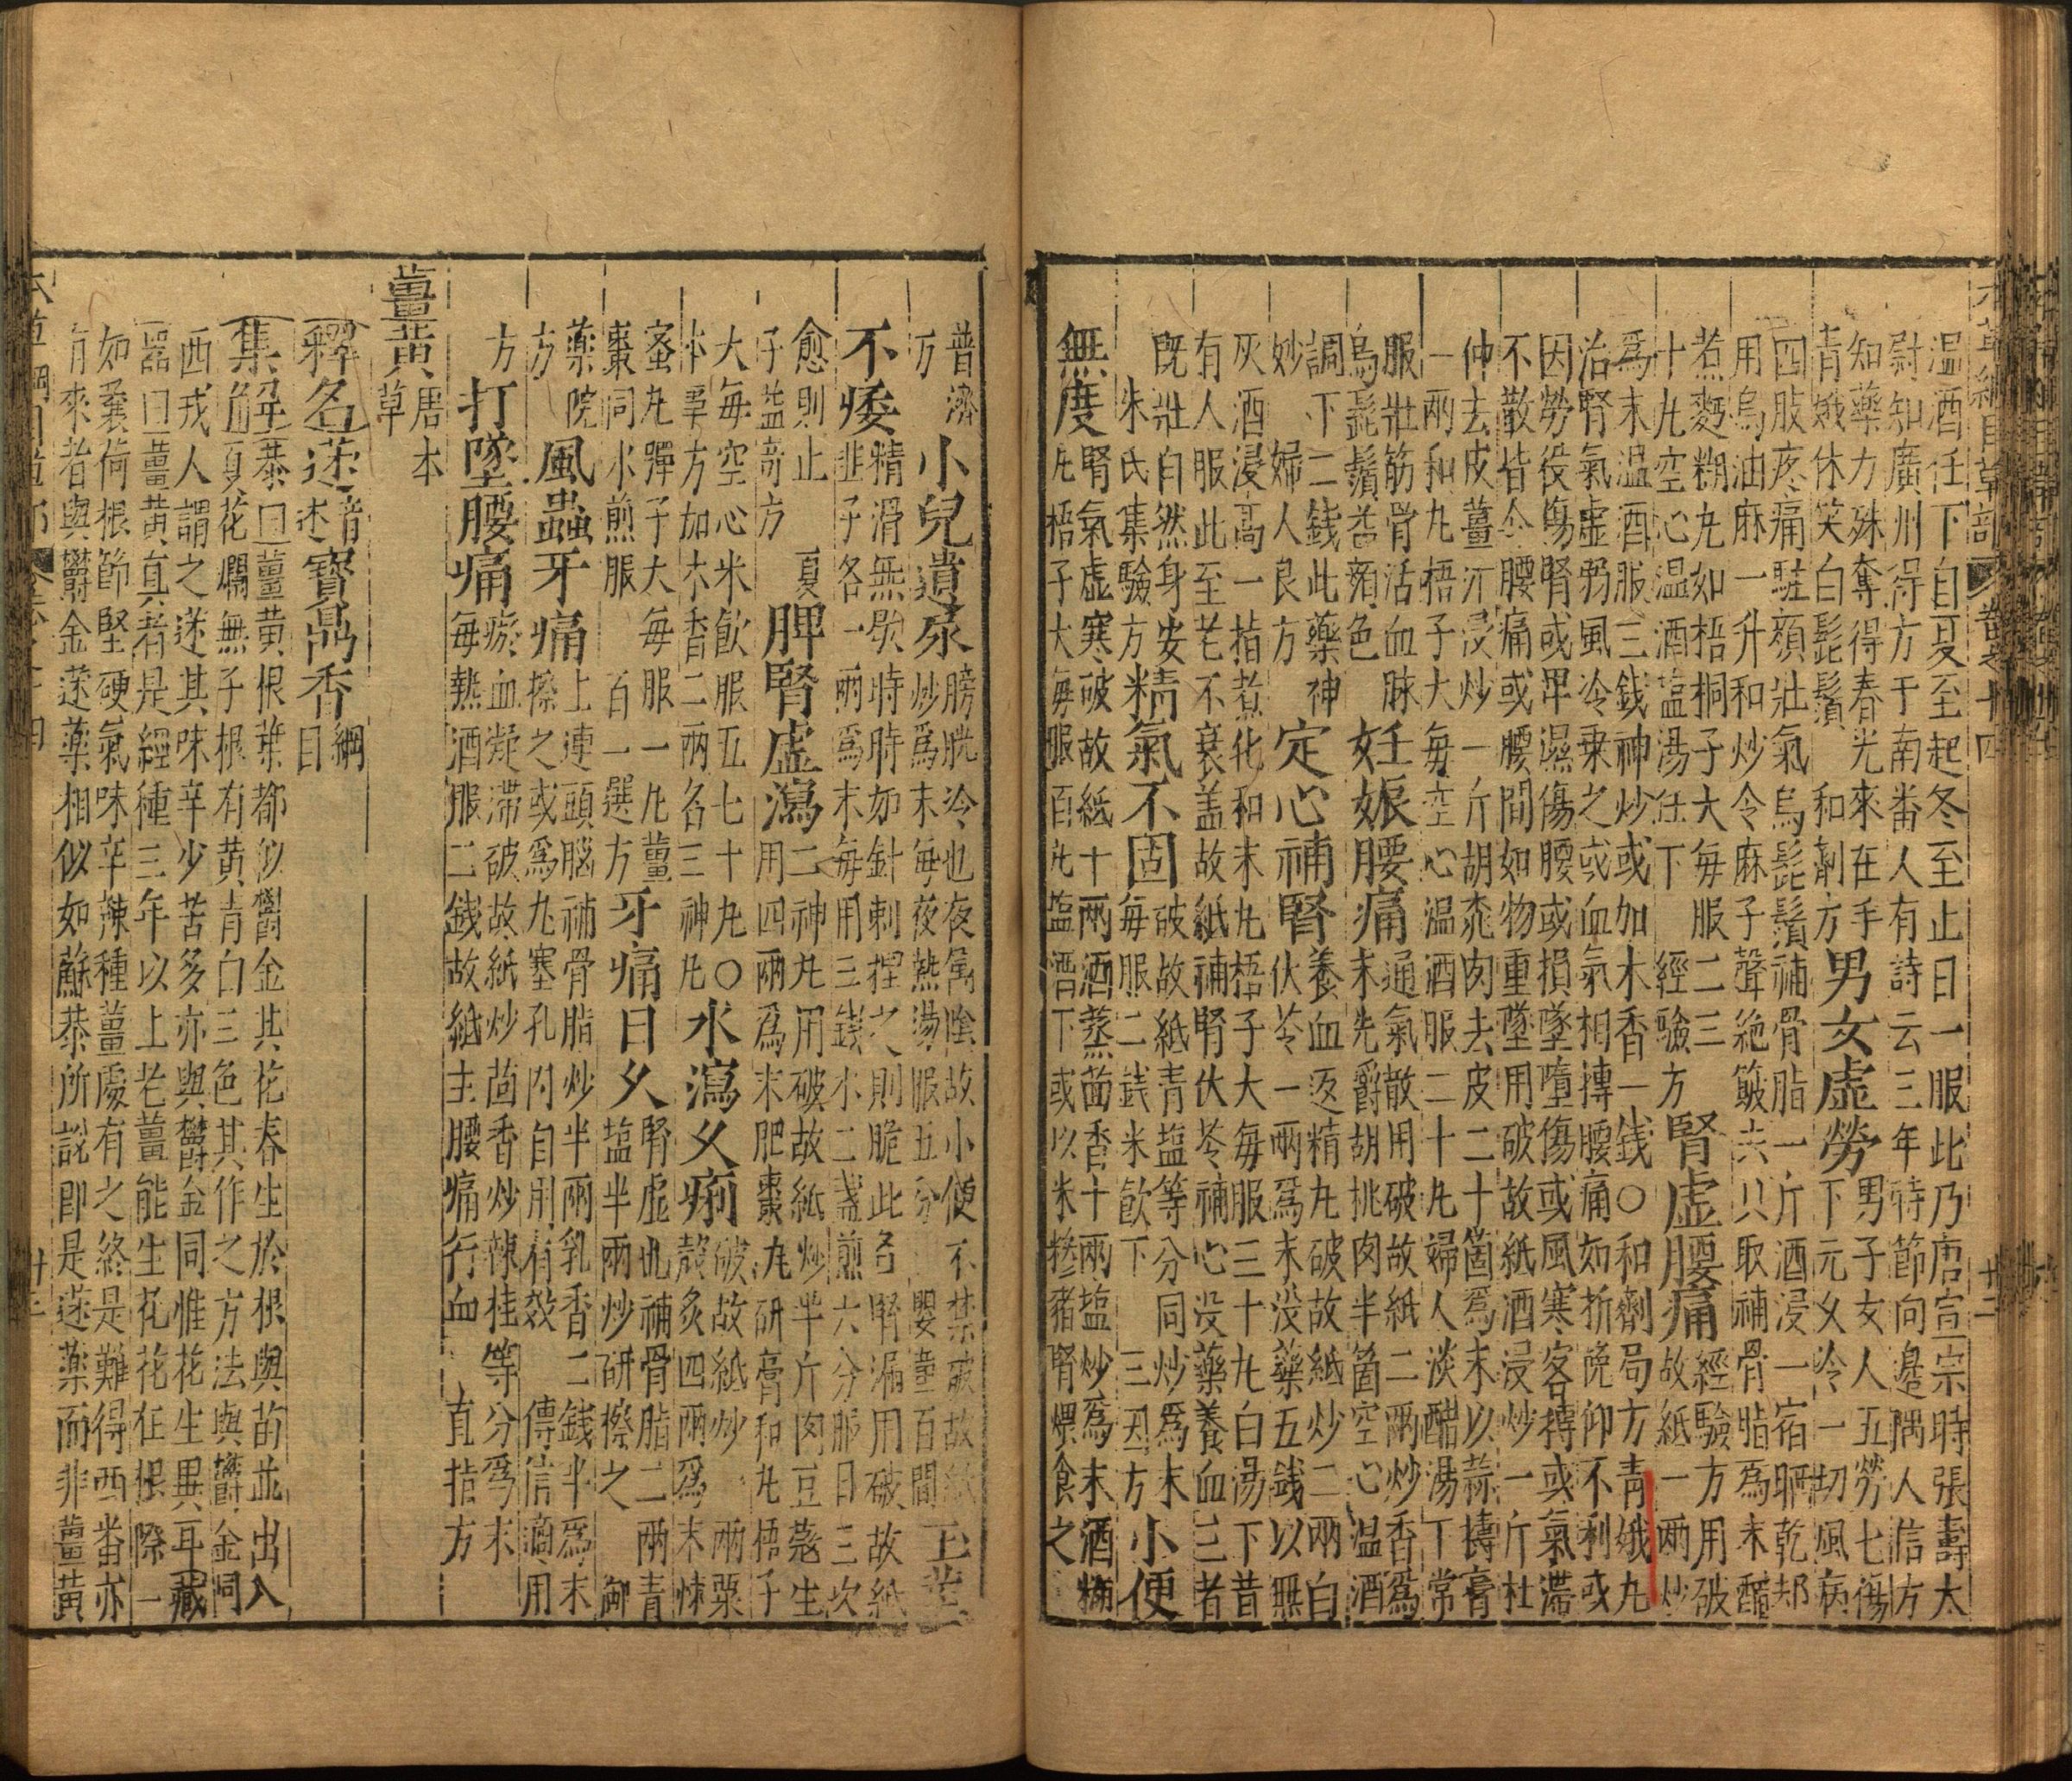 本草綱目草部 卷之十四 廿二
温酒任下自夏至起冬至止日一服此乃唐宣宗時張壽太
尉知廣州得方于南番人有詩云三年時節向邊隅人信方
知藥力殊奪得春光來在手
青娥休笑白髭鬚 和劑方
男女虛勞
男子女人五勞七傷
下元久冷一切風病
四肢疼痛駐顔壯氣烏髭鬚補骨脂一斤酒浸一宿晒乾却
用烏油麻一升和炒令麻子聲絶簸去只取補骨脂為末醋
煮麪糊丸如梧桐子大每服二三
十丸空心温酒塩湯任下 經驗方
腎虛腰痛
經驗方用破
故紙一兩炒
爲末温酒服三錢神妙或加木香一錢○和劑局方青娥丸
治腎氣虚弱風冷乘之或血氣相摶腰痛如折俛仰不利或
因勞役傷腎或卑濕傷腰或損墜墮傷或風寒客摶或氣滯
不散皆令腰痛或腰間如物重墜用破故紙酒浸炒一斤杜
仲去皮薑汁浸炒一斤胡桃肉去皮二十箇爲末以蒜擣膏
一兩和丸梧子大每空心温酒服二十丸婦人淡醋湯下常
服壯筋骨活血脉
烏髭鬚益顔色
妊娠腰痛
通氣散用破故紙二兩炒香爲
末先嚼胡桃肉半箇空心温酒
調下二錢此藥神
妙 婦人良方
定心補腎
養血返精丸破故紙炒二兩白
伏苓一兩爲末没藥五錢以無
灰酒浸高一指煮化和末丸梧子大每服三十丸白湯下昔
有人服此至老不衰盖故紙補腎伏苓補心没藥養血三者
既壯自然身安
朱氏集驗方
精氣不固
破故紙青塩等分同炒爲末
每服二錢米飲下 三因方
小便
無度
腎氣虚寒破故紙十兩酒蒸茴香十兩塩炒爲末酒糊
丸梧子大每服百丸塩酒下或以末糝猪腎煨食之
普濟
方
小兒遺尿
膀胱冷也夜屬陰故小便不禁破故紙
炒爲末每夜熱湯服五分 嬰童百問
玉莖
不痿
精滑無歇時時如針刺捏之則脆此名腎漏用破故紙
韭子各一兩爲末每用三錢水二盞煎六分服日三次
愈則止 夏
子益奇方
脾腎虛瀉
二神丸用破故紙炒半斤肉豆蔻生
用四兩爲末肥棗丸研膏和丸梧子
大每空心米飲服五七十丸○
本事方加木香二兩名三神丸
水瀉久痢
破故紙炒一兩粟
殼炙四兩爲末煉
蜜丸彈子大每服一丸薑
棗同水煎服 百一選方
牙痛日久
腎虛也補骨脂二兩青
塩半兩炒研擦之 御
藥院
方
風蟲牙痛
上連頭腦補骨脂炒半兩乳香二錢半爲末
擦之或爲丸塞孔内自用有效 傳信適用
方
打墜腰痛
瘀血凝滯破故紙炒茴香炒辣桂等分爲末
每熱酒服二錢故紙主腰痛行血 直指方
薑黄
唐本
草
釋名
蒁
音
述
寳鼎香
綱
目
集解
恭曰薑黄根葉都似鬱金其花春生於根與苗並出入
夏花爛無子根有黄青白三色其作之方法與鬱金同
西戎人謂之蒁其味辛少苦多亦與鬱金同惟花生異耳藏
器曰薑黄真者是經種三年以上老薑能生花花在根際一
如蘘荷根節堅硬氣味辛辣種薑處有之終是難得西番亦
有來者與鬱金蒁藥相似如蘇恭所説即是蒁藥而非薑黄
本草綱目草部 卷之十四 廿三